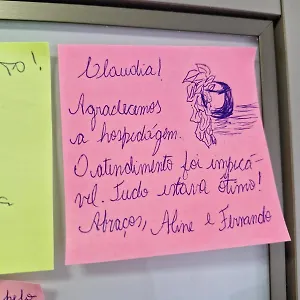 Claudia!
Agradecemos
a hospedagem.
O atendimento foi impecá-
vel. Tudo estava ótimo!
Abraços, Aline e Fernando
pelo